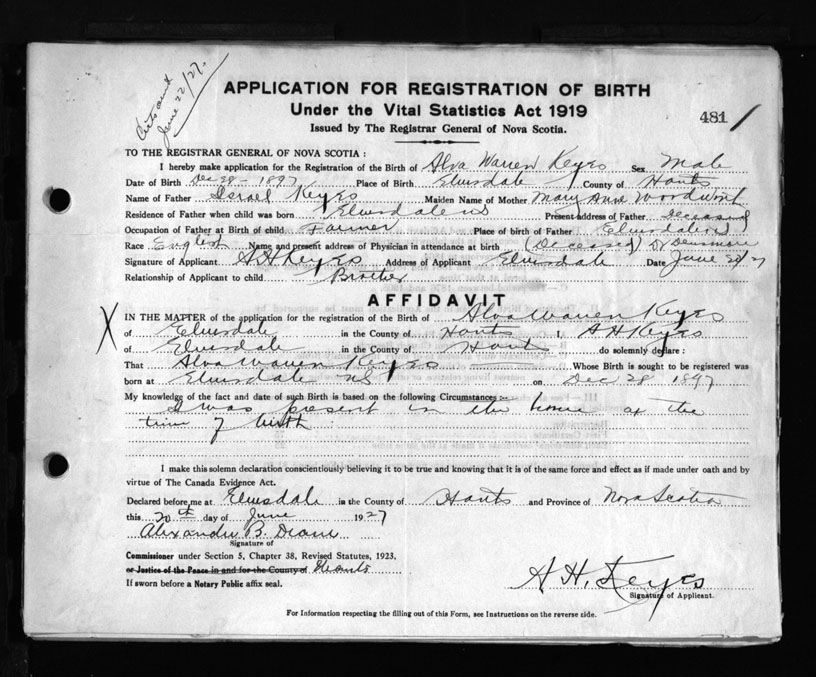 June 22/27.
APPLICATION FOR REGISTRATION OF BIRTH
Under the Vital Statistics Act 1919
481
Issued by The Registrar General of Nova Scotia.
TO THE REGISTRAR GENERAL OF NOVA SCOTIA :
I hereby make application for the Registration of the Birth of Alva Warren Keyes Sex Male
Date of Birth Dec 28 - 1897 Place of Birth Elmsdale County of Hants
Name of Father Israel Keyes Maiden Name of Mother Mary Anne Woodworth
Residence of Father when child was born Elmsdale NS Present address of Father Deceased
Occupation of Father at Birth of child Farmer Place of birth of Father Elmsdale NS
Race English Name and present address of Physician in attendance at birth (Deceased) Dr Densmore
Signature of Applicant A H Keyes Address of Applicant Elmsdale Date June 20/27
Relationship of Applicant to child Brother
AFFIDAVIT
X IN THE MATTER of the application for the registration of Birth of Alva Warren Keyes
of Elmsdale in the County of Hants I, A H Keyes
of Elmsdale in the County of Hants do solemnly declare :
That Alva Warren Keyes Whose Birth is sought to be registered was
born at Elmsdale NS on Dec 28 1897
My knowledge of the fact and date of such Birth is based on the following Circumstances :-
I was present in the home at the
time of birth
I make this solemn declaration conscientiously believing it to be true and knowing that it is of the same force and effect as if made under oath and by
virtue of The Canada Evidence Act.
Declared before me at Elmsdale in the County of Hants and Province of Nova Scotia
this 20th day of June 1927
Alexander B. Deane
Signature of
Commissioner under Section 5, Chapter 38, Revised Statutes, 1923,
or Justice of the Peace in and for the County of Hants
If sworn before a Notary Public affix seal.
A H. Keyes
Signature of Applicant.
For Information respecting the filling out of this Form, see Instructions on the reverse side.